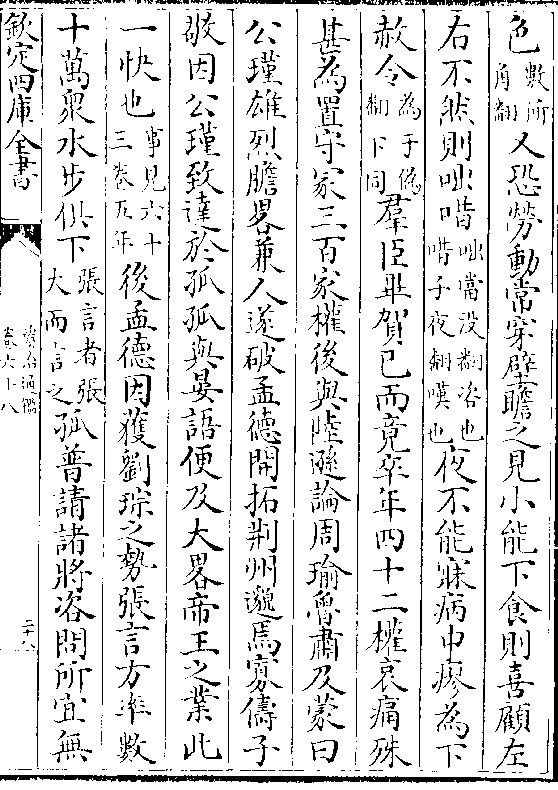 色數所角翻又恐勞動常穿壁瞻之見小能下食則喜顧左
右不然則咄唶咄當没翻咨也唶子夜翻嘆也夜不能寐病中瘳為下
赦令為于偽翻下同羣臣畢賀已而竟卒年四十二權哀痛殊
甚為置守冡三百家權後與陸遜論周瑜魯肅及蒙曰
公瑾雄烈膽畧兼人遂破孟德開拓荆州邈焉寡儔子
敬因公瑾致達於孤孤與晏語便及大畧帝王之業此
一快也事見六十三卷五年後孟德因獲劉琮之勢張言方率數
十萬衆水步俱下張言者張大而言之孤普請諸將咨問所宜無
欽定四庫全書
資治通鑑
卷六十八
二十八